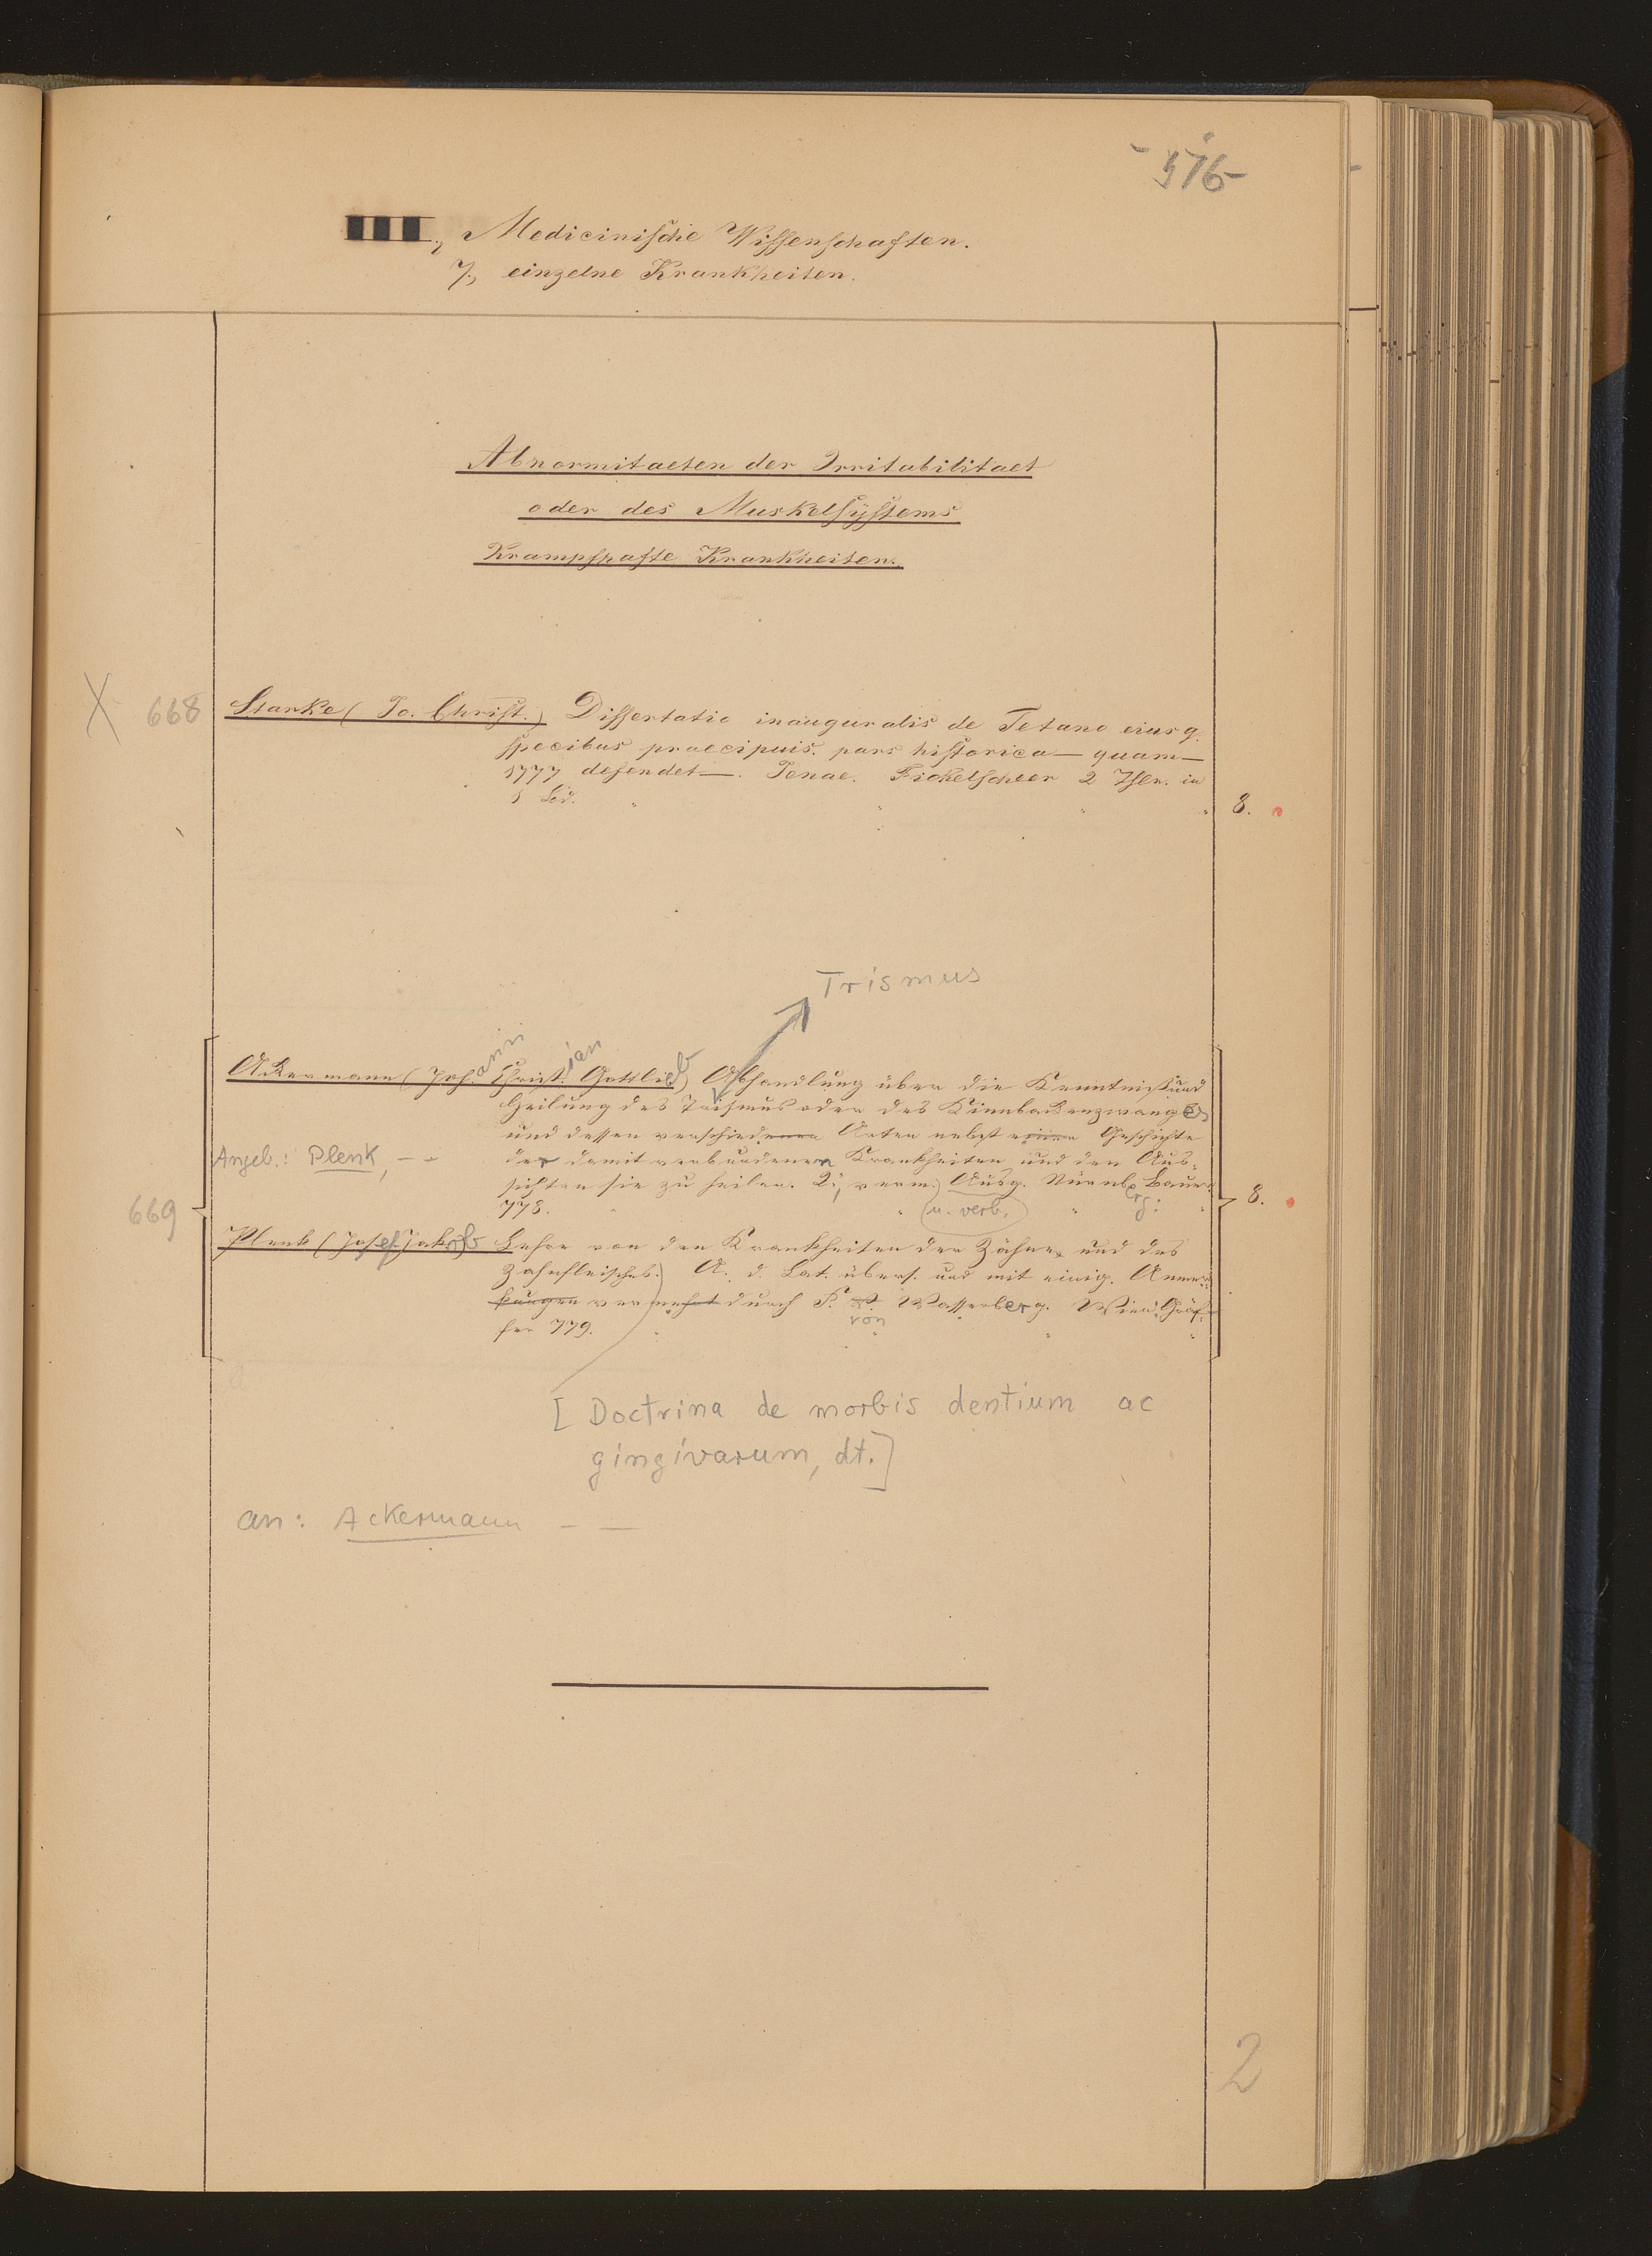 - 576 -
III., Medicinische Wissenschaften.
7., einzelne Krankheiten.
Abnormitaeten der Irritabilitaet
oder des Muskelsÿstems
Krampfhafte Krankheiten.
X 668 Starke (Jo. Christ.) Dissertatio inauguralis de Tetano eiusq.
specibus praecipuis. pars historica — quam —
1777 defendet —. Jenae. Fickelscheer 2 Thle. in
8.
Trismus
Ackermann (Johann Christian Gottlieb) Abhandlung über die Kenntniß und
Heilung des Trismus oder des Kinnbackenzwanges
und dessen verschiedenen Arten nebst einer Geschichte
Angeb.: Plenk, - -
der damit verbundenen Krankheiten und den Aus-
sichten sie zu heilen. 2., verm. Ausg. Nürnberg: Bauer
778. u. verb. 8.
669
Plenk (Josef Jakob) Lehre von den Krankheiten der Zähne und des
Zahnfleisches. A. d. Lat. übers. und mit einig. Anmer-
kungen vermehrt durch F. v. Wasserberg. Wien: Gräf-
fer 779. von
[Doctrina de morbis dentium ac
gingivarum, dt.]
an: Ackermann - -
2